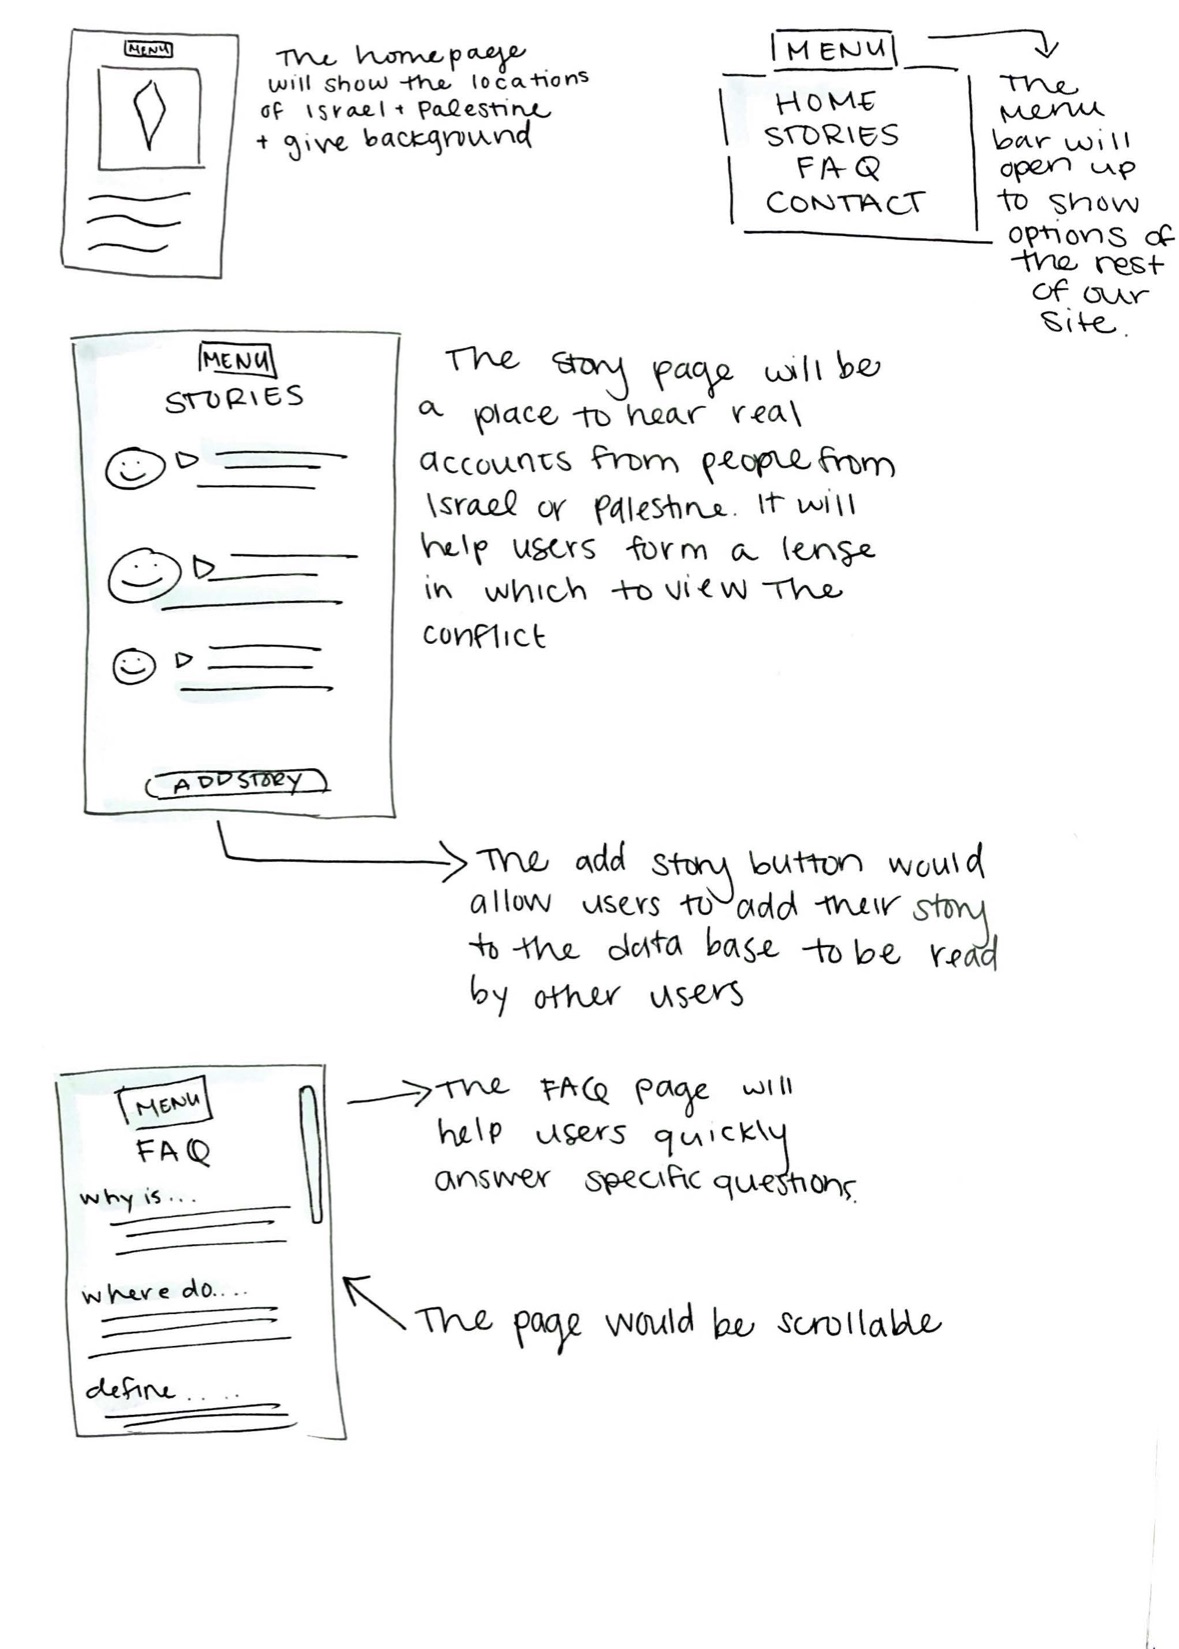 MENU
The homepage
will show the locations
of Israel + Palestine
+ give background
MENU
HOME
STORIES
FAQ
CONTACT
The
menu
bar will
open up
to show
options of
the rest
of our
site.
MENU
STORIES
ADD STORY
The story page will be
a place to hear real
accounts from people from
Israel or Palestine. It will
help users form a lense
in which to view the
conflict
The add story button would
allow users to add their story
to the data base to be read
by other users
MENU
FAQ
why is...
where do....
define.....
The FAQ page will
help users quickly
answer specific questions.
The page would be scrollable